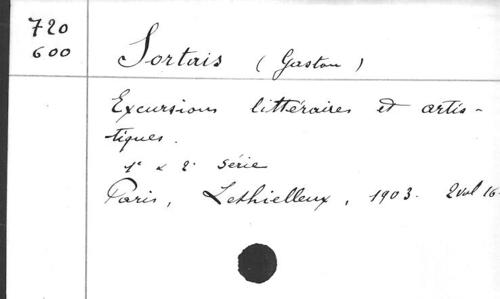 720
600
Sortais (Gaston)
Excursions littéraires et artis-
tiques.
1e & 2e Série
Paris, Lethielleux, 1903. 2 vol 16-